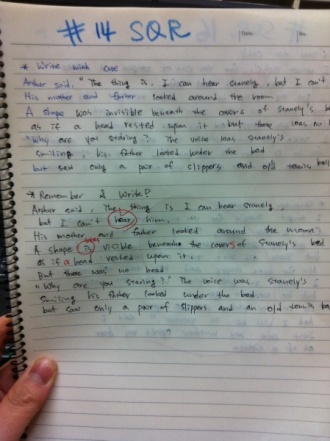 #14 SQR
* Write with cue
Arthur said, "The thing is, I can hear stanely, but I can't
His mother and farther looked around the room
A shape was invisible beneath the covers of stanely's be
as if a head rested upon it but there was no
"Why are you staring?" The voice was stanely's.
Smiling, his father looked under the bed
but saw only a pair of slippers and old tennis ball
* Remember & Write?
Arthur said, The thing is I can hear stanely
but I can't hear him.
His mother and father looked around the
A shape is visible beneathe the covers of stanely's bed
as if a head rested upon it.
But there was no head
"Why are you staring?" The voice was stanely's
Smiling his father looked under the bed
but saw only a pair of slippers and an old tennis ba